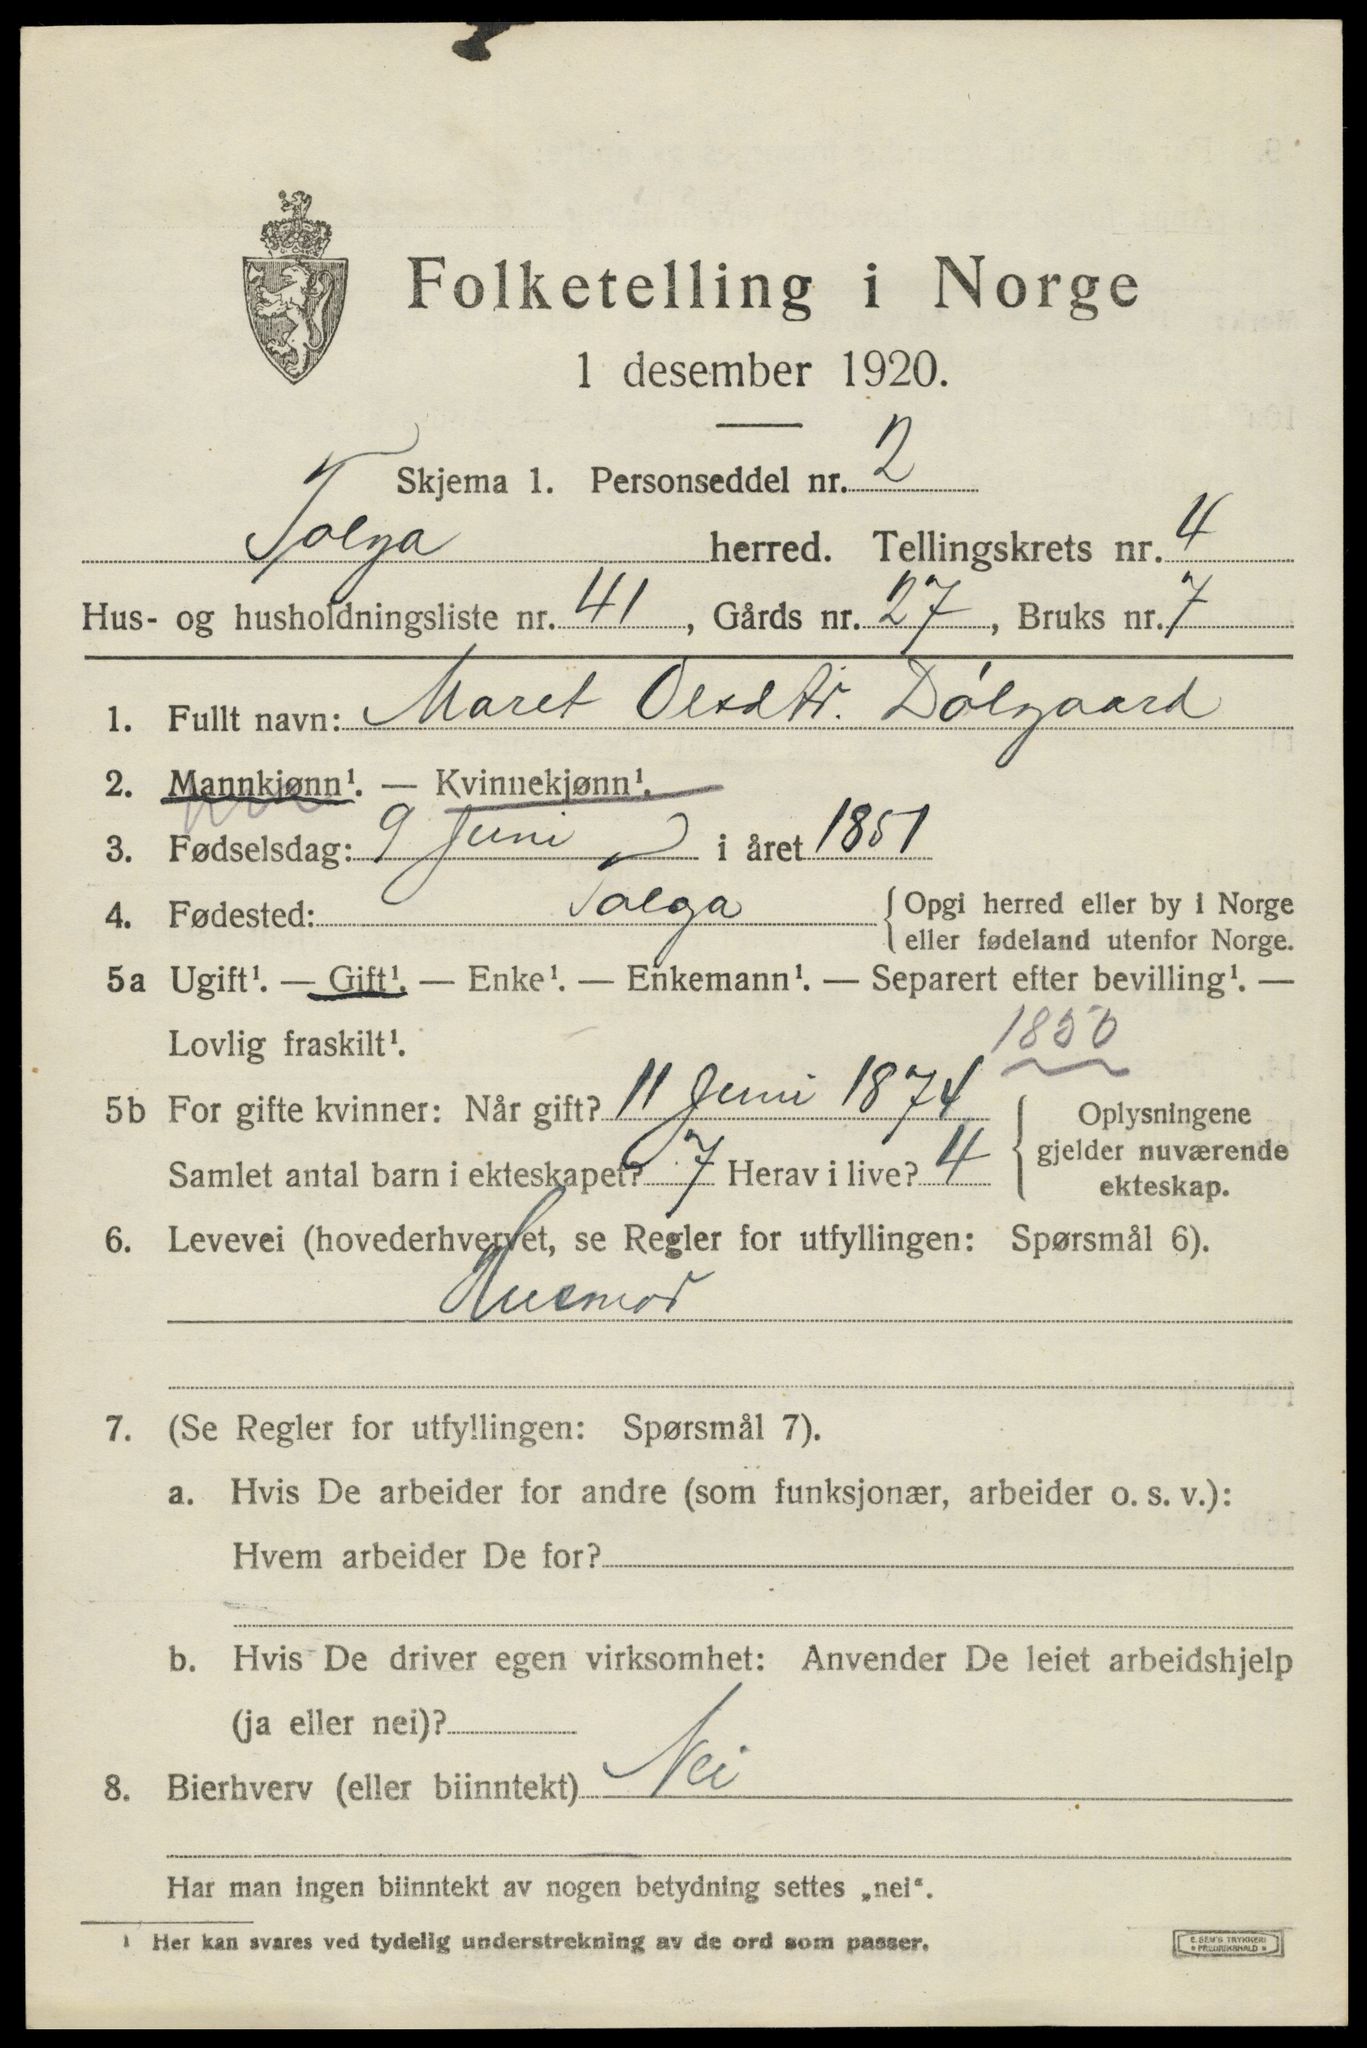 Folketelling i Norge
1 desember 1920.
Skjema 1. Personseddel nr. 2
Tolga herred. Tellingskrets nr. 4
Hus- og husholdningsliste nr. 41, Gårds nr. 27, Bruks nr. 7
1. Fullt navn: Maret Olsdtr. Dølgaard
2. Mannkjønn¹. — Kvinnekjønn¹.
3. Fødselsdag: 9 Juni i året 1851
4. Fødested: Tolga {Opgi herred eller by i Norge
eller fødeland utenfor Norge.
5a Ugift¹. — Gift¹. — Enke¹. — Enkemann¹. — Separert efter bevilling¹. —
Lovlig fraskilt¹.
1850
5b For gifte kvinner: Når gift? 11 Juni 1874
Samlet antal barn i ekteskapet? 7 Herav i live? 4
{Oplysningene
gjelder nuværende
ekteskap.
6. Levevei (hovederhvervet, se Regler for utfyllingen: Spørsmål 6).
Husmor
7. (Se Regler for utfyllingen: Spørsmål 7).
a. Hvis De arbeider for andre (som funksjonær, arbeider o. s. v.):
Hvem arbeider De for?
b. Hvis De driver egen virksomhet: Anvender De leiet arbeidshjelp
(ja eller nei)?
8. Bierhverv (eller biinntekt) Nei
Har man ingen biinntekt av nogen betydning settes „nei“.
¹ Her kan svares ved tydelig understrekning av de ord som passer.
E. SEM'S TRYKKERI
* FREDRIKSHALD *